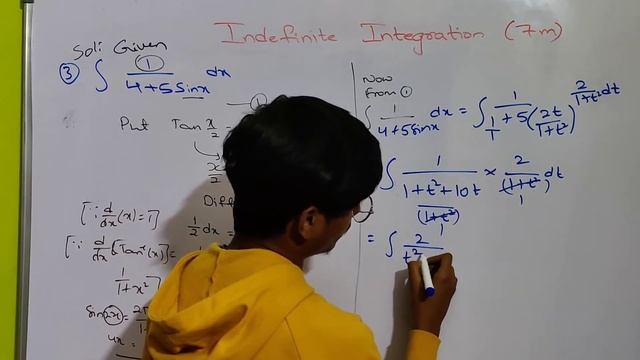 Indefinite Integration (7m)
Soln: Given
③ ∫ 1/(4+5sinx) dx —①
Put Tan x/2
x/2
Diff
1/2 dx =
[∵ d/dx(x)=1]
[∵ d/dx{Tan⁻¹(x)}=
1/(1+x²)]
sin(2x)=
4x =
Now
from ①
∫ 1/(4+5sinx) dx = ∫ 1/(1/1+5(2t/(1+t²))) 2/(1+t²) dt
∫ 1/((1+t²+10t)/(1+t²)) × 2/(1+t²) dt
= ∫ 2/t²